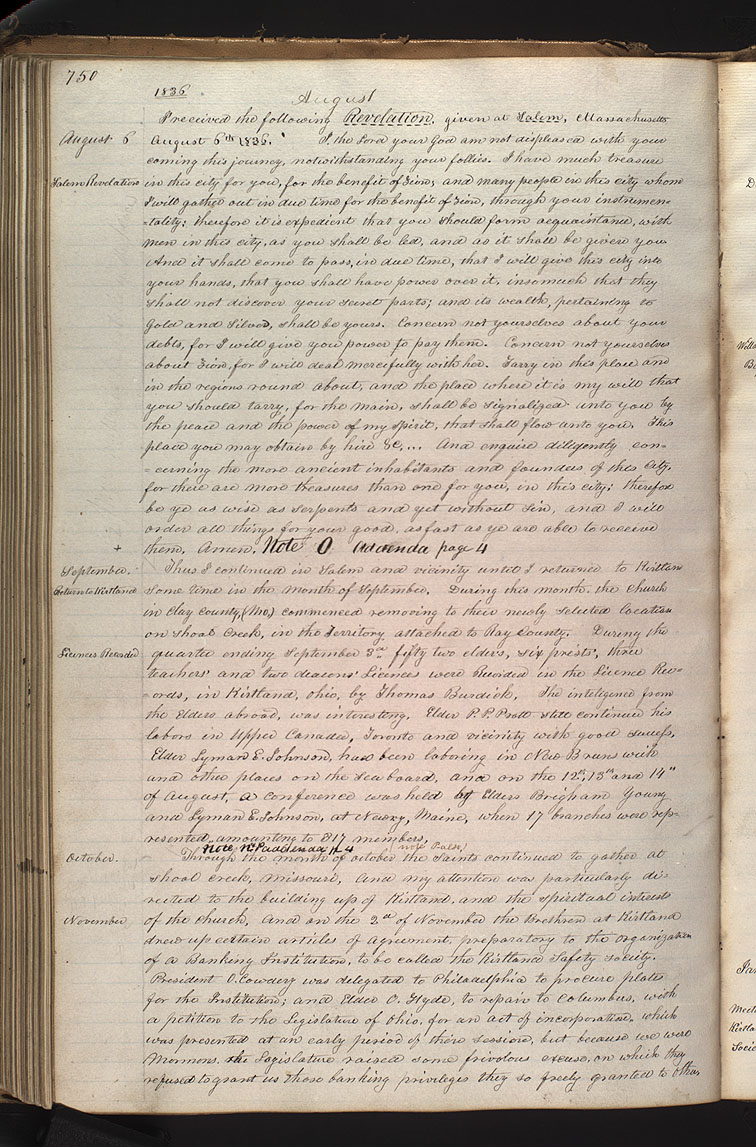 750
1836
August
I received the following Revelation, given at Salem, Massachusetts
August 6 August 6th 1836. I, the Lord your God am not displeased with your
coming this journey, notwithstanding your follies. I have much treasure
Salem Revelation in this city for you, for the benefit of Zion; and many people in this city whom
I will gather out in due time for the benefit of Zion, through your instrumen-
=tality; therefore it is expedient that you should form acquaintance, with
men in this city, as you shall be led, and as it shall be given you.
And it shall come to pass, in due time, that I will give this city into
your hands, that you shall have power over it, insomuch that they
shall not discover your secret parts; and its wealth, pertaining to
Gold and Silver, shall be yours. Concern not yourselves about your
debts, for I will give you power to pay them. Concern not yourselves
about Zion, for I will deal mercifully with her. Tarry in this place and
in the regions round about, and the place where it is my will that
you should tarry, for the main, shall be signalized unto you by
the peace and the power of my spirit, that shall flow unto you. This
place you may obtain by hire &c,... And enquire diligently con-
=cerning the more ancient inhabitants and founders of this city,
for there are more treasures than one for you, in this city; therefore
be ye as wise as serpents and yet without sin, and I will
order all things for your good, as fast as ye are able to receive
+ them. Amen. Note O Addenda page 4
September. Thus I continued in Salem and vicinity until I returned to Kirtland
Return to Kirtland some time in the month of September. During this month, the Church
in Clay County, (Mo,) commenced removing to their newly selected location
on Shoal Creek, in the Territory attached to Ray County. During the
Licences Recorded quarter ending September 3rd fifty two elders, six prests', three
teachers' and two deacons' Licences were Recorded in the Licence Rec-
=ords, in Kirtland, Ohio, by Thomas Burdick. The inteligence from
the Elders abroad, was interesting. Elder P. P. Pratt still continued his
labors in Upper Canada, Toronto and vicinity with good success,
Elder Lyman E. Johnson, had been laboring in New Brunswick
and other places on the sea board, and on the 12th, 13th and 14th
of August, a conference was held by Elders Brigham Young
and Lyman E. Johnson, at Newry, Maine, when 17 branches were rep-
resented, amounting to 317 members.
Note N. Paddenda p. 4
October. Through the month of October the Saints continued to gather at
Shoal Creek, Missouri, And my attention was particularly di-
rected to the building up of Kirtland, and the spiritual interests
November of the Church, And on the 2nd of November the Brethren at Kirtland
drew up certain articles of Agreement, preparatory to the organization
of a Banking Institution, to be called the Kirtland Safety Society.
President O. Cowdery was delegated to Philadelphia to procure plates
for the Institution; and Elder O. Hyde, to repair to Columbus, with
a petition to the Legislature of Ohio, for an act of incorporation, which
was presented at an early period of their Session, but because we were
Mormons, the Legislature raised some frivolous excuse, on which they
refused to grant us those banking privileges they so freely granted to others